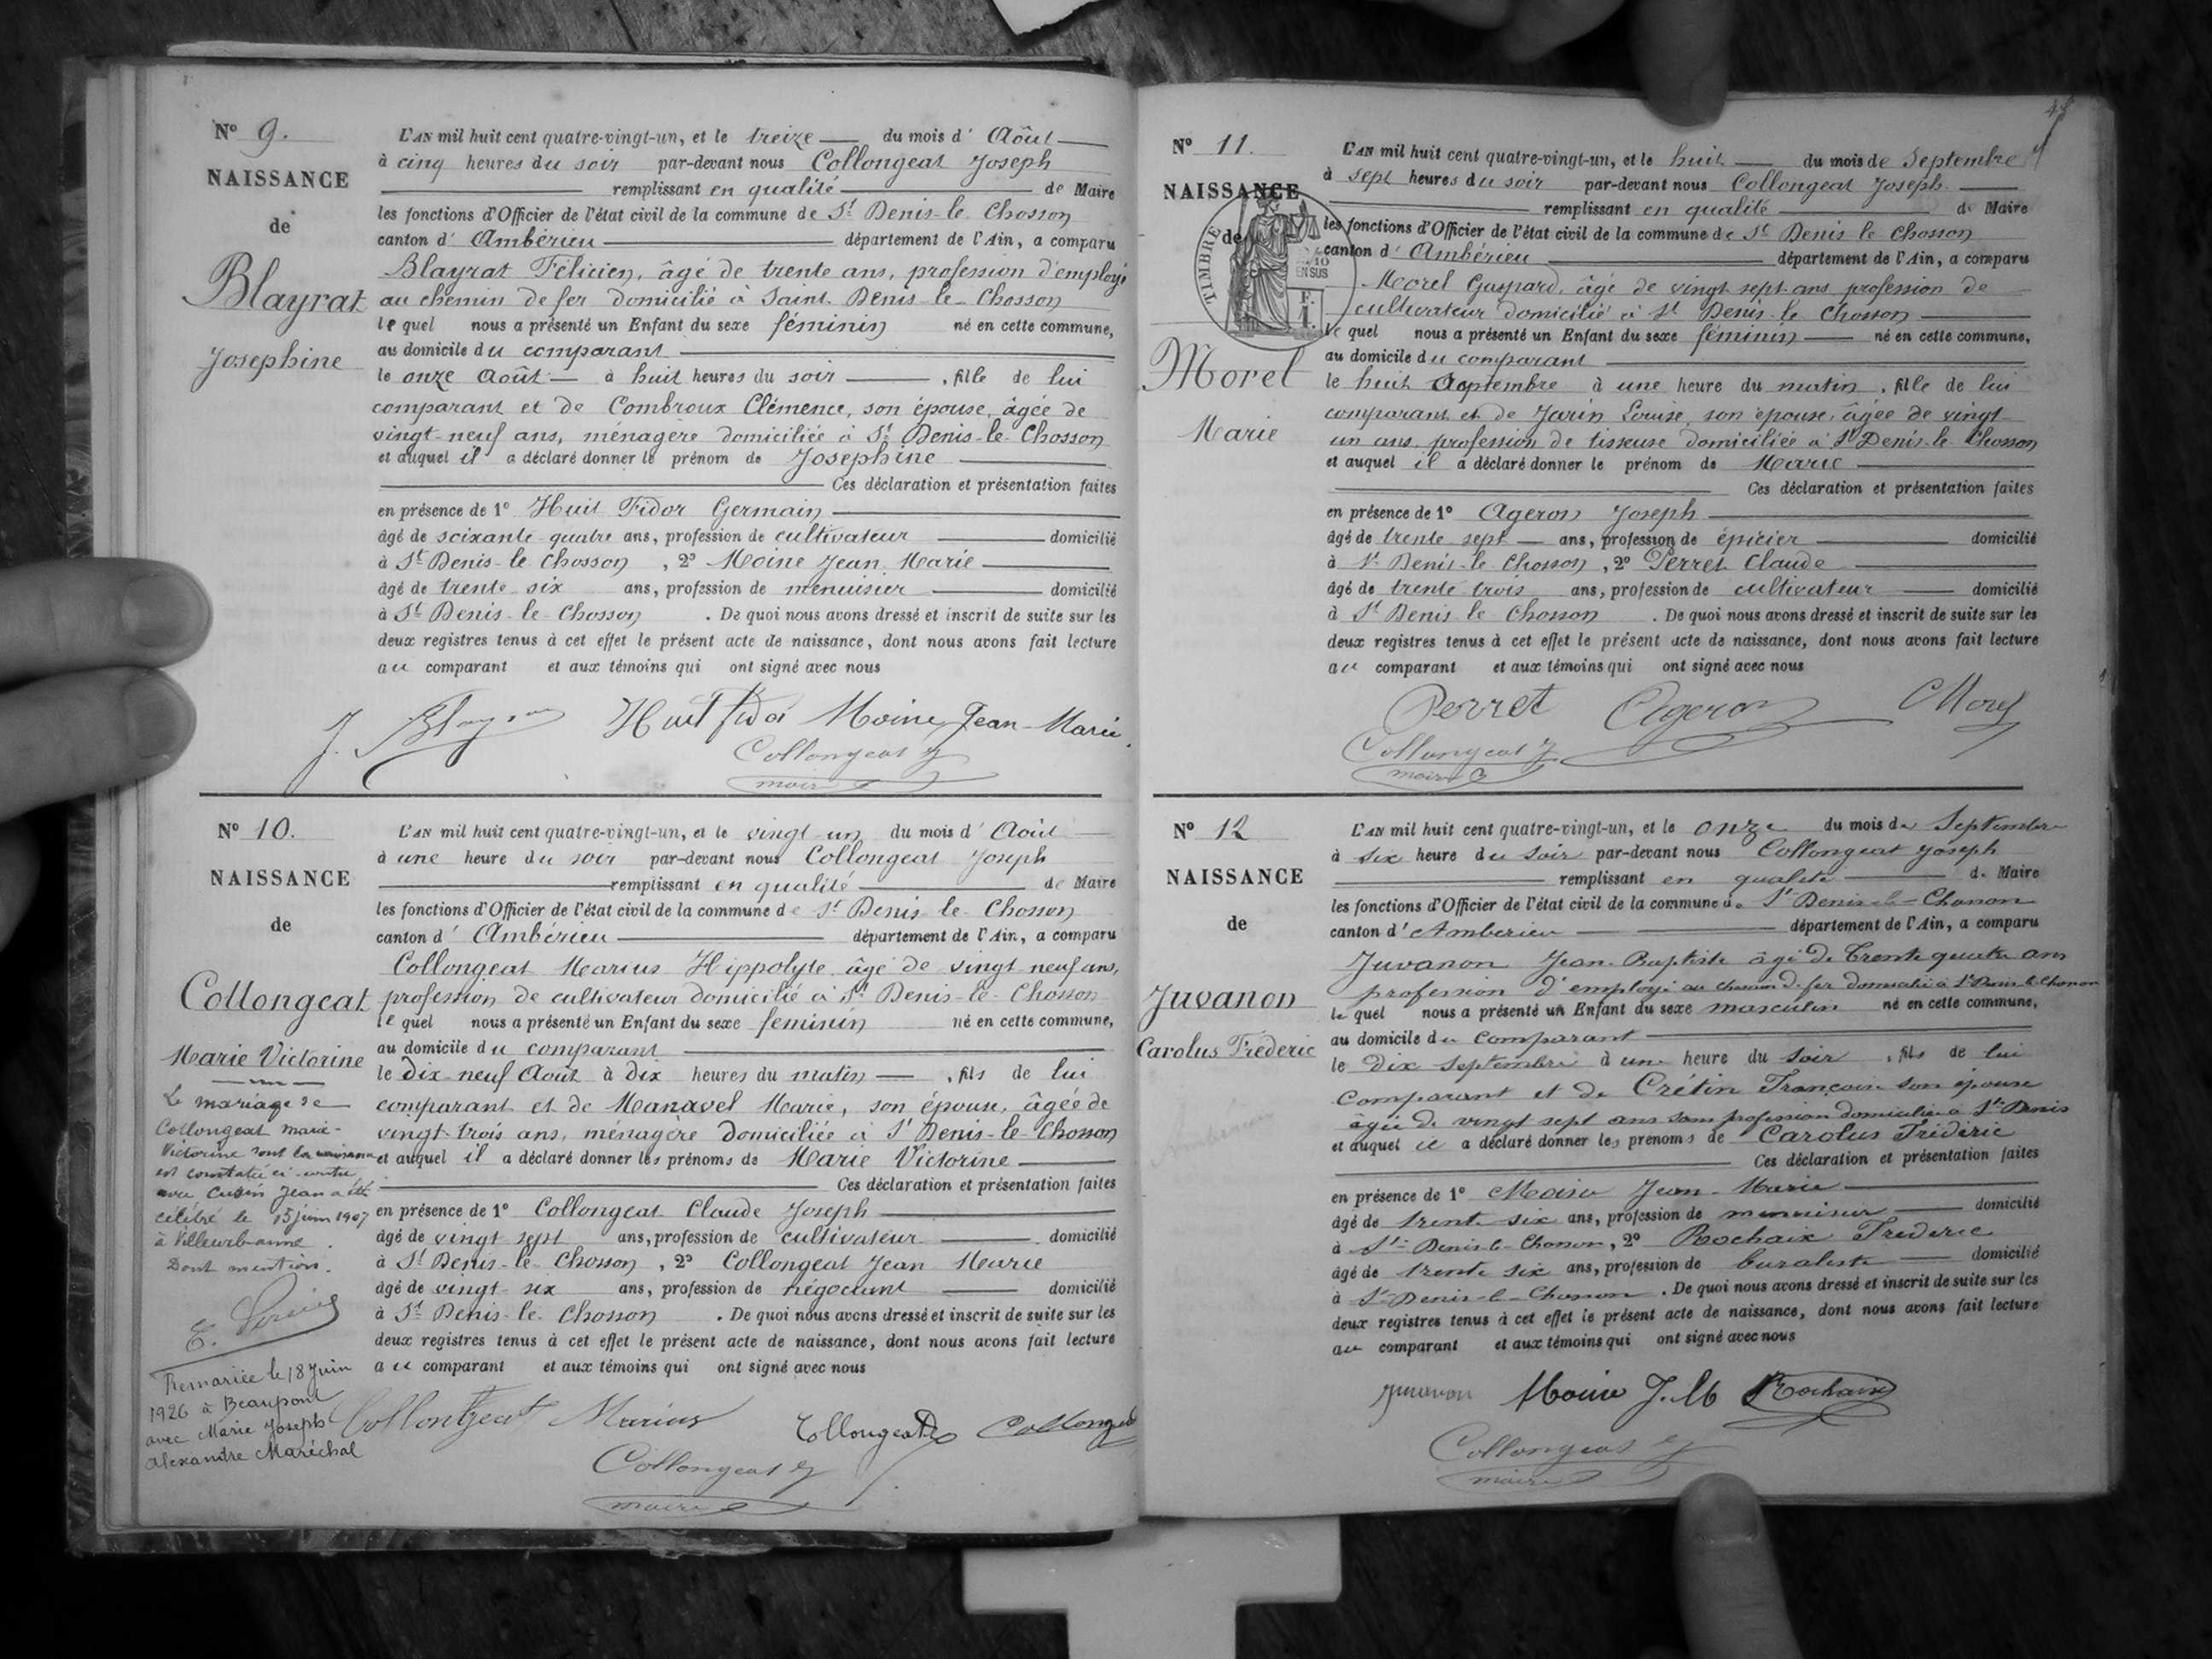 Nº 9.
NAISSANCE
de
Blayrat
Josephine
L'AN mil huit cent quatre-vingt-un, et le treize du mois d' Août
à cinq heures du soir par-devant nous Collongeat Joseph
remplissant en qualité de Maire
les fonctions d'Officier de l'état civil de la commune de St Denis-le-Chosson
canton d' Ambérieu département de l'Ain, a comparu
Blayrat Félicien, âgé de trente ans, profession d'employé
au chemin de fer domicilié à Saint-Denis-le-Chosson
lequel nous a présenté un Enfant du sexe féminin né en cette commune,
au domicile du comparant
le onze Août à huit heures du soir , fille de lui
comparant et de Combroux Clémence, son épouse, âgée de
vingt-neuf ans, ménagère domiciliée à St Denis-le-Chosson
et auquel il a déclaré donner le prénom de Josephine
Ces déclaration et présentation faites
en présence de 1º Huit Fidor Germain
âgé de soixante-quatre ans, profession de cultivateur domicilié
à St Denis-le-Chosson , 2º Moine Jean Marie
âgé de trente six ans, profession de menuisier domicilié
à St Denis-le-Chosson . De quoi nous avons dressé et inscrit de suite sur les
deux registres tenus à cet effet le présent acte de naissance, dont nous avons fait lecture
au comparant et aux témoins qui ont signé avec nous
Huit fidor Moine Jean-Marie
Collongeat J
maire
Nº 10.
NAISSANCE
de
Collongeat
Marie Victorine
Le mariage de
Collongeat Marie-
Victorine dont la naissance
est constatée ci-contre
avec Cusin Jean a été
célébré le 15 juin 1907
à Villeurbanne.
Dont mention.
Remariée le 18 Juin
1926 à Beaupont
avec Marie Joseph
Alexandre Maréchal
L'AN mil huit cent quatre-vingt-un, et le vingt-un du mois d' Août
à une heure du soir par-devant nous Collongeat Joseph
remplissant en qualité de Maire
les fonctions d'Officier de l'état civil de la commune de St Denis-le-Chosson
canton d' Ambérieu département de l'Ain, a comparu
Collongeat Marius Hippolyte âgé de vingt neuf ans,
profession de cultivateur domicilié à St Denis-le-Chosson
lequel nous a présenté un Enfant du sexe feminin né en cette commune,
au domicile du comparant
le dix-neuf Août à dix heures du matin , fils de lui
comparant et de Manavel Marie, son épouse, âgée de
vingt-trois ans, ménagère domiciliée à St Denis-le-Chosson
et auquel il a déclaré donner les prénoms de Marie Victorine
Ces déclaration et présentation faites
en présence de 1º Collongeat Claude Joseph
âgé de vingt sept ans, profession de cultivateur domicilié
à St Denis-le-Chosson , 2º Collongeat Jean Marie
âgé de vingt six ans, profession de négociant domicilié
à St Denis-le-Chosson . De quoi nous avons dressé et inscrit de suite sur les
deux registres tenus à cet effet le présent acte de naissance, dont nous avons fait lecture
au comparant et aux témoins qui ont signé avec nous
Collongeat Marius Collongeat Collongeat
Collongeat J
maire
Nº 11.
NAISSANCE
de
TIMBRE
EN SUS
Morel
Marie
L'AN mil huit cent quatre-vingt-un, et le huit du mois de Septembre
à sept heures du soir par-devant nous Collongeat Joseph
remplissant en qualité de Maire
les fonctions d'Officier de l'état civil de la commune de St Denis le Chosson
canton d' Ambérieu département de l'Ain, a comparu
Morel Gaspard, âgé de vingt sept ans, profession de
cultivateur domicilié à St Denis-le-Chosson
lequel nous a présenté un Enfant du sexe féminin né en cette commune,
au domicile du comparant
le huit septembre à une heure du matin , fille de lui
comparant et de Jarin Louise, son épouse, âgée de vingt-
un ans, profession de tisseuse domiciliée à St Denis-le-Chosson
et auquel il a déclaré donner le prénom de Marie
Ces déclaration et présentation faites
en présence de 1º Ageron Joseph
âgé de trente sept ans, profession de épicier domicilié
à St Denis-le-Chosson , 2º Perret Claude
âgé de trente trois ans, profession de cultivateur domicilié
à St Denis le Chosson . De quoi nous avons dressé et inscrit de suite sur les
deux registres tenus à cet effet le présent acte de naissance, dont nous avons fait lecture
au comparant et aux témoins qui ont signé avec nous
Perret Ageron Morel
Collongeat J
maire
Nº 12
NAISSANCE
de
Juvanon
Carolus Fréderic
L'AN mil huit cent quatre-vingt-un, et le onze du mois de Septembre
à six heure du soir par-devant nous Collongeat Joseph
remplissant en qualité de Maire
les fonctions d'Officier de l'état civil de la commune de St Denis-le-Chosson
canton d' Amberieu département de l'Ain, a comparu
Juvanon Jean-Baptiste âgé de trente quatre ans
profession d'employé au chemin de fer domicilié à St Denis le Chosson
lequel nous a présenté un Enfant du sexe masculin né en cette commune,
au domicile du comparant
le dix septembre à une heure du soir , fils de lui
comparant et de Crétin Françoise son épouse
âgée de vingt sept ans sans profession domiciliée à St Denis
et auquel il a déclaré donner les prénoms de Carolus Fréderic
Ces déclaration et présentation faites
en présence de 1º Moine Jean-Marie
âgé de trente six ans, profession de menuisier domicilié
à St Denis-le-Chosson , 2º Rochaix Frederic
âgé de trente six ans, profession de buraliste domicilié
à St Denis-le-Chosson . De quoi nous avons dressé et inscrit de suite sur les
deux registres tenus à cet effet le présent acte de naissance, dont nous avons fait lecture
au comparant et aux témoins qui ont signé avec nous
Juvanon Moine J.M Rochaix
Collongeat J
maire